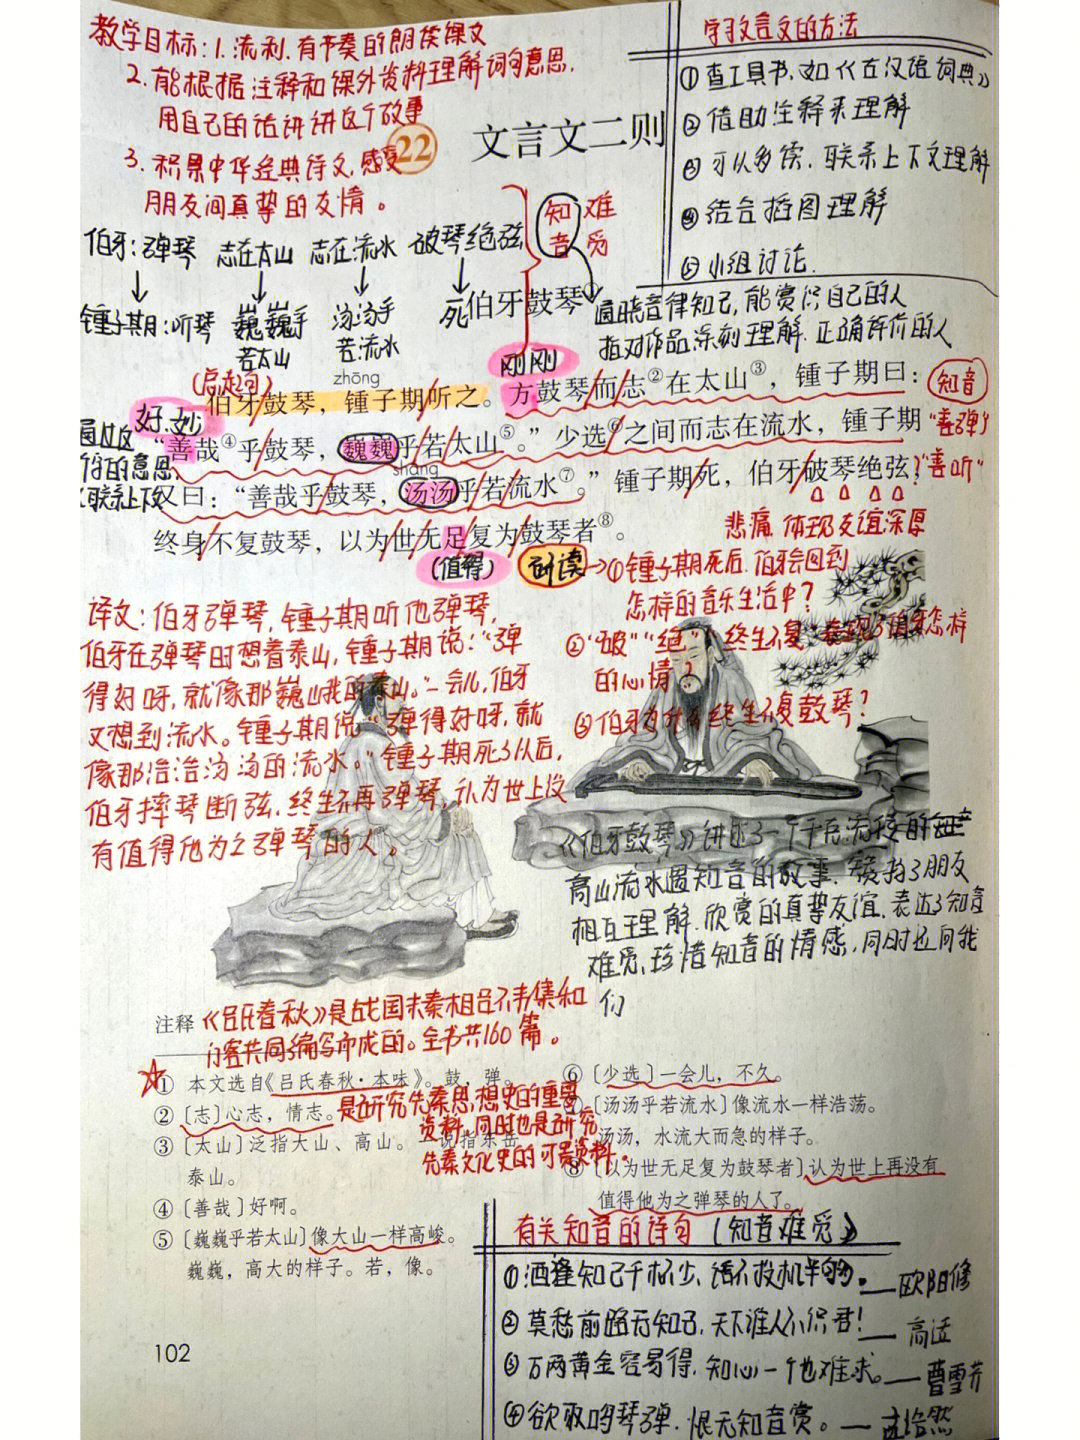 教学目标：1.流利、有节奏的朗读课文
2.能根据注释和课外资料理解词句意思，
用自己的话讲讲这个故事
3.积累中华经典诗文，感受
朋友间真挚的友情。
学习文言文的方法
①查工具书，如《古汉语词典》
②借助注释来理解
③可以多读，联系上下文理解
④结合插图理解
⑤小组讨论.
22 文言文二则
知音 难觅
伯牙：弹琴 志在太山 志在流水 破琴绝弦
锺子期：听琴 巍巍乎若太山 汤汤乎若流水 死
伯牙鼓琴①
通晓音律知己，能赏识自己的人
指对作品深刻理解、正确评价的人
刚刚
zhōng
伯牙鼓琴，锺子期听之。方鼓琴而志②在太山③，锺子期曰：
知音
好、妙
“善哉④乎鼓琴，巍巍乎若太山⑤。”少选⑥之间而志在流水，锺子期
“善弹”
shāng
又曰：“善哉乎鼓琴，汤汤乎若流水⑦。”锺子期死，伯牙破琴绝弦，
“善听”
终身不复鼓琴，以为世无足复为鼓琴者⑧。
悲痛 体现友谊深厚
(值得)
研读→①锺子期死后，伯牙会回到
怎样的音乐生活中？
②“破”“绝”
的心情？
③伯牙为什么终生不复鼓琴？
译文：伯牙弹琴，锺子期听他弹琴，
伯牙在弹琴时想着泰山，锺子期说：“弹
得好呀，就像那巍峨的泰山。”一会儿，伯牙
又想到流水。锺子期说“弹得好呀，就
像那浩浩汤汤的流水。”锺子期死了以后，
伯牙摔琴断弦，终生不再弹琴，认为世上没
有值得他为之弹琴的人。
《伯牙鼓琴》讲述了一个千古流传的
高山流水遇知音的故事，
相互理解、欣赏的真挚友谊，表达了知音
难觅、珍惜知音的情感，同时还向我
们
注释
《吕氏春秋》是战国末秦相吕不韦集和
门客共同编写而成的。全书共160篇。
① 本文选自《吕氏春秋·本味》。鼓，弹。
是研究先秦思想史的重要
资料，同时也是研究
先秦文化史的可贵资料。
②〔志〕心志，情志。
③〔太山〕泛指大山、高山。一说指东岳
泰山。
④〔善哉〕好啊。
⑤〔巍巍乎若太山〕像大山一样高峻。
巍巍，高大的样子。若，像。
⑥〔少选〕一会儿，不久。
⑦〔汤汤乎若流水〕像流水一样浩荡。
汤汤，水流大而急的样子。
⑧〔以为世无足复为鼓琴者〕认为世上再没有
值得他为之弹琴的人了。
有关知音的诗句（知音难觅）
①酒逢知己千杯少，话不投机半句多。——欧阳修
②莫愁前路无知己，天下谁人不识君！——高适
③万两黄金容易得，知心一个也难求。——曹雪芹
④欲取鸣琴弹，恨无知音赏。——孟浩然
102